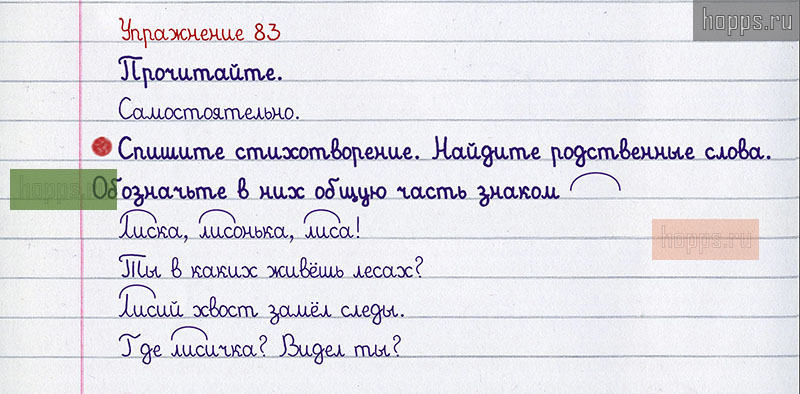 hopps.ru
Упражнение 83
Прочитайте.
Самостоятельно.
Спишите стихотворение. Найдите родственные слова.
hopps.ru
Обозначьте в них общую часть знаком
Лиска, лисонька, лиса!
hopps.ru
Ты в каких живёшь лесах?
Лисий хвост замёл следы.
Где лисичка? Видел ты?